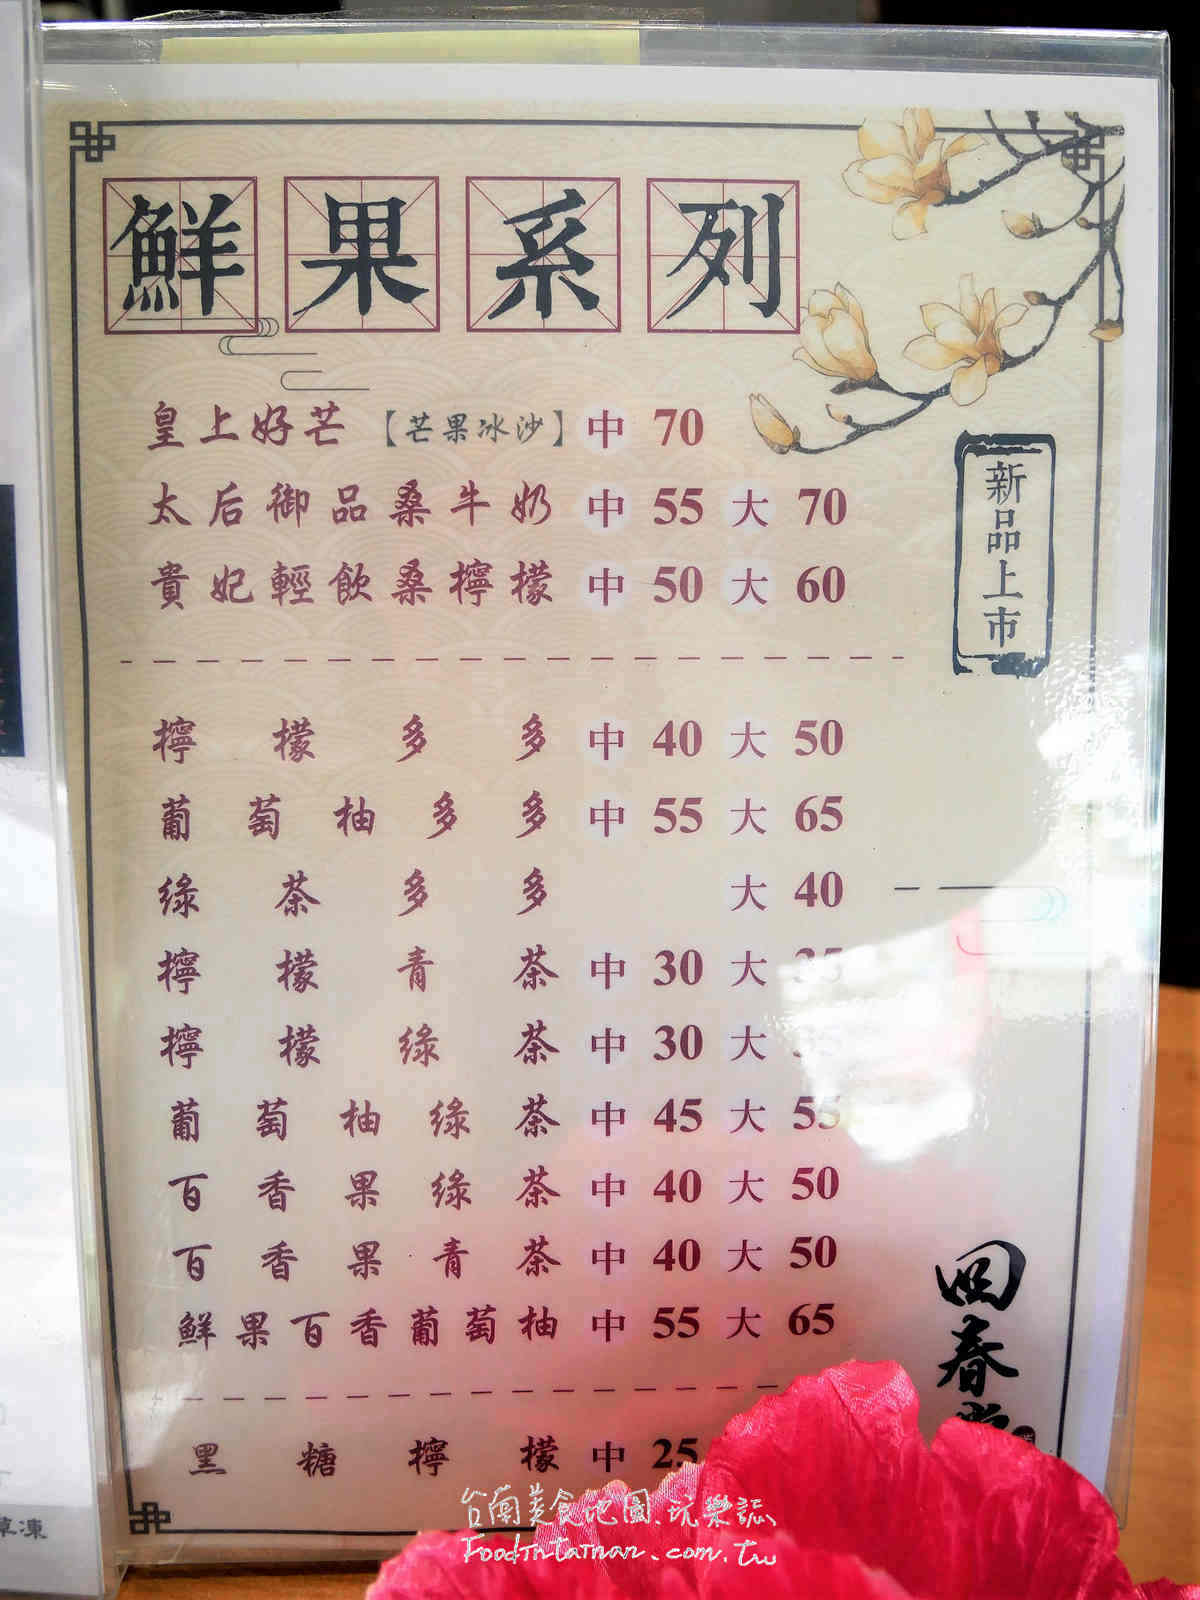 鮮果系列
皇上好芒【芒果冰沙】中 70
太后御品桑牛奶 中 55 大 70
貴妃輕飲桑檸檬 中 50 大 60
新品上市
檸檬多多 中 40 大 50
葡萄柚多多 中 55 大 65
綠茶多多 大 40
檸檬青茶 中 30 大 35
檸檬綠茶 中 30 大
葡萄柚綠茶 中 45 大 55
百香果綠茶 中 40 大 50
百香果青茶 中 40 大 50
鮮果百香葡萄柚 中 55 大 65
黑糖檸檬 中 25
回春
凍
台南美食地圖.玩樂誌
FoodInTainan.com.tw